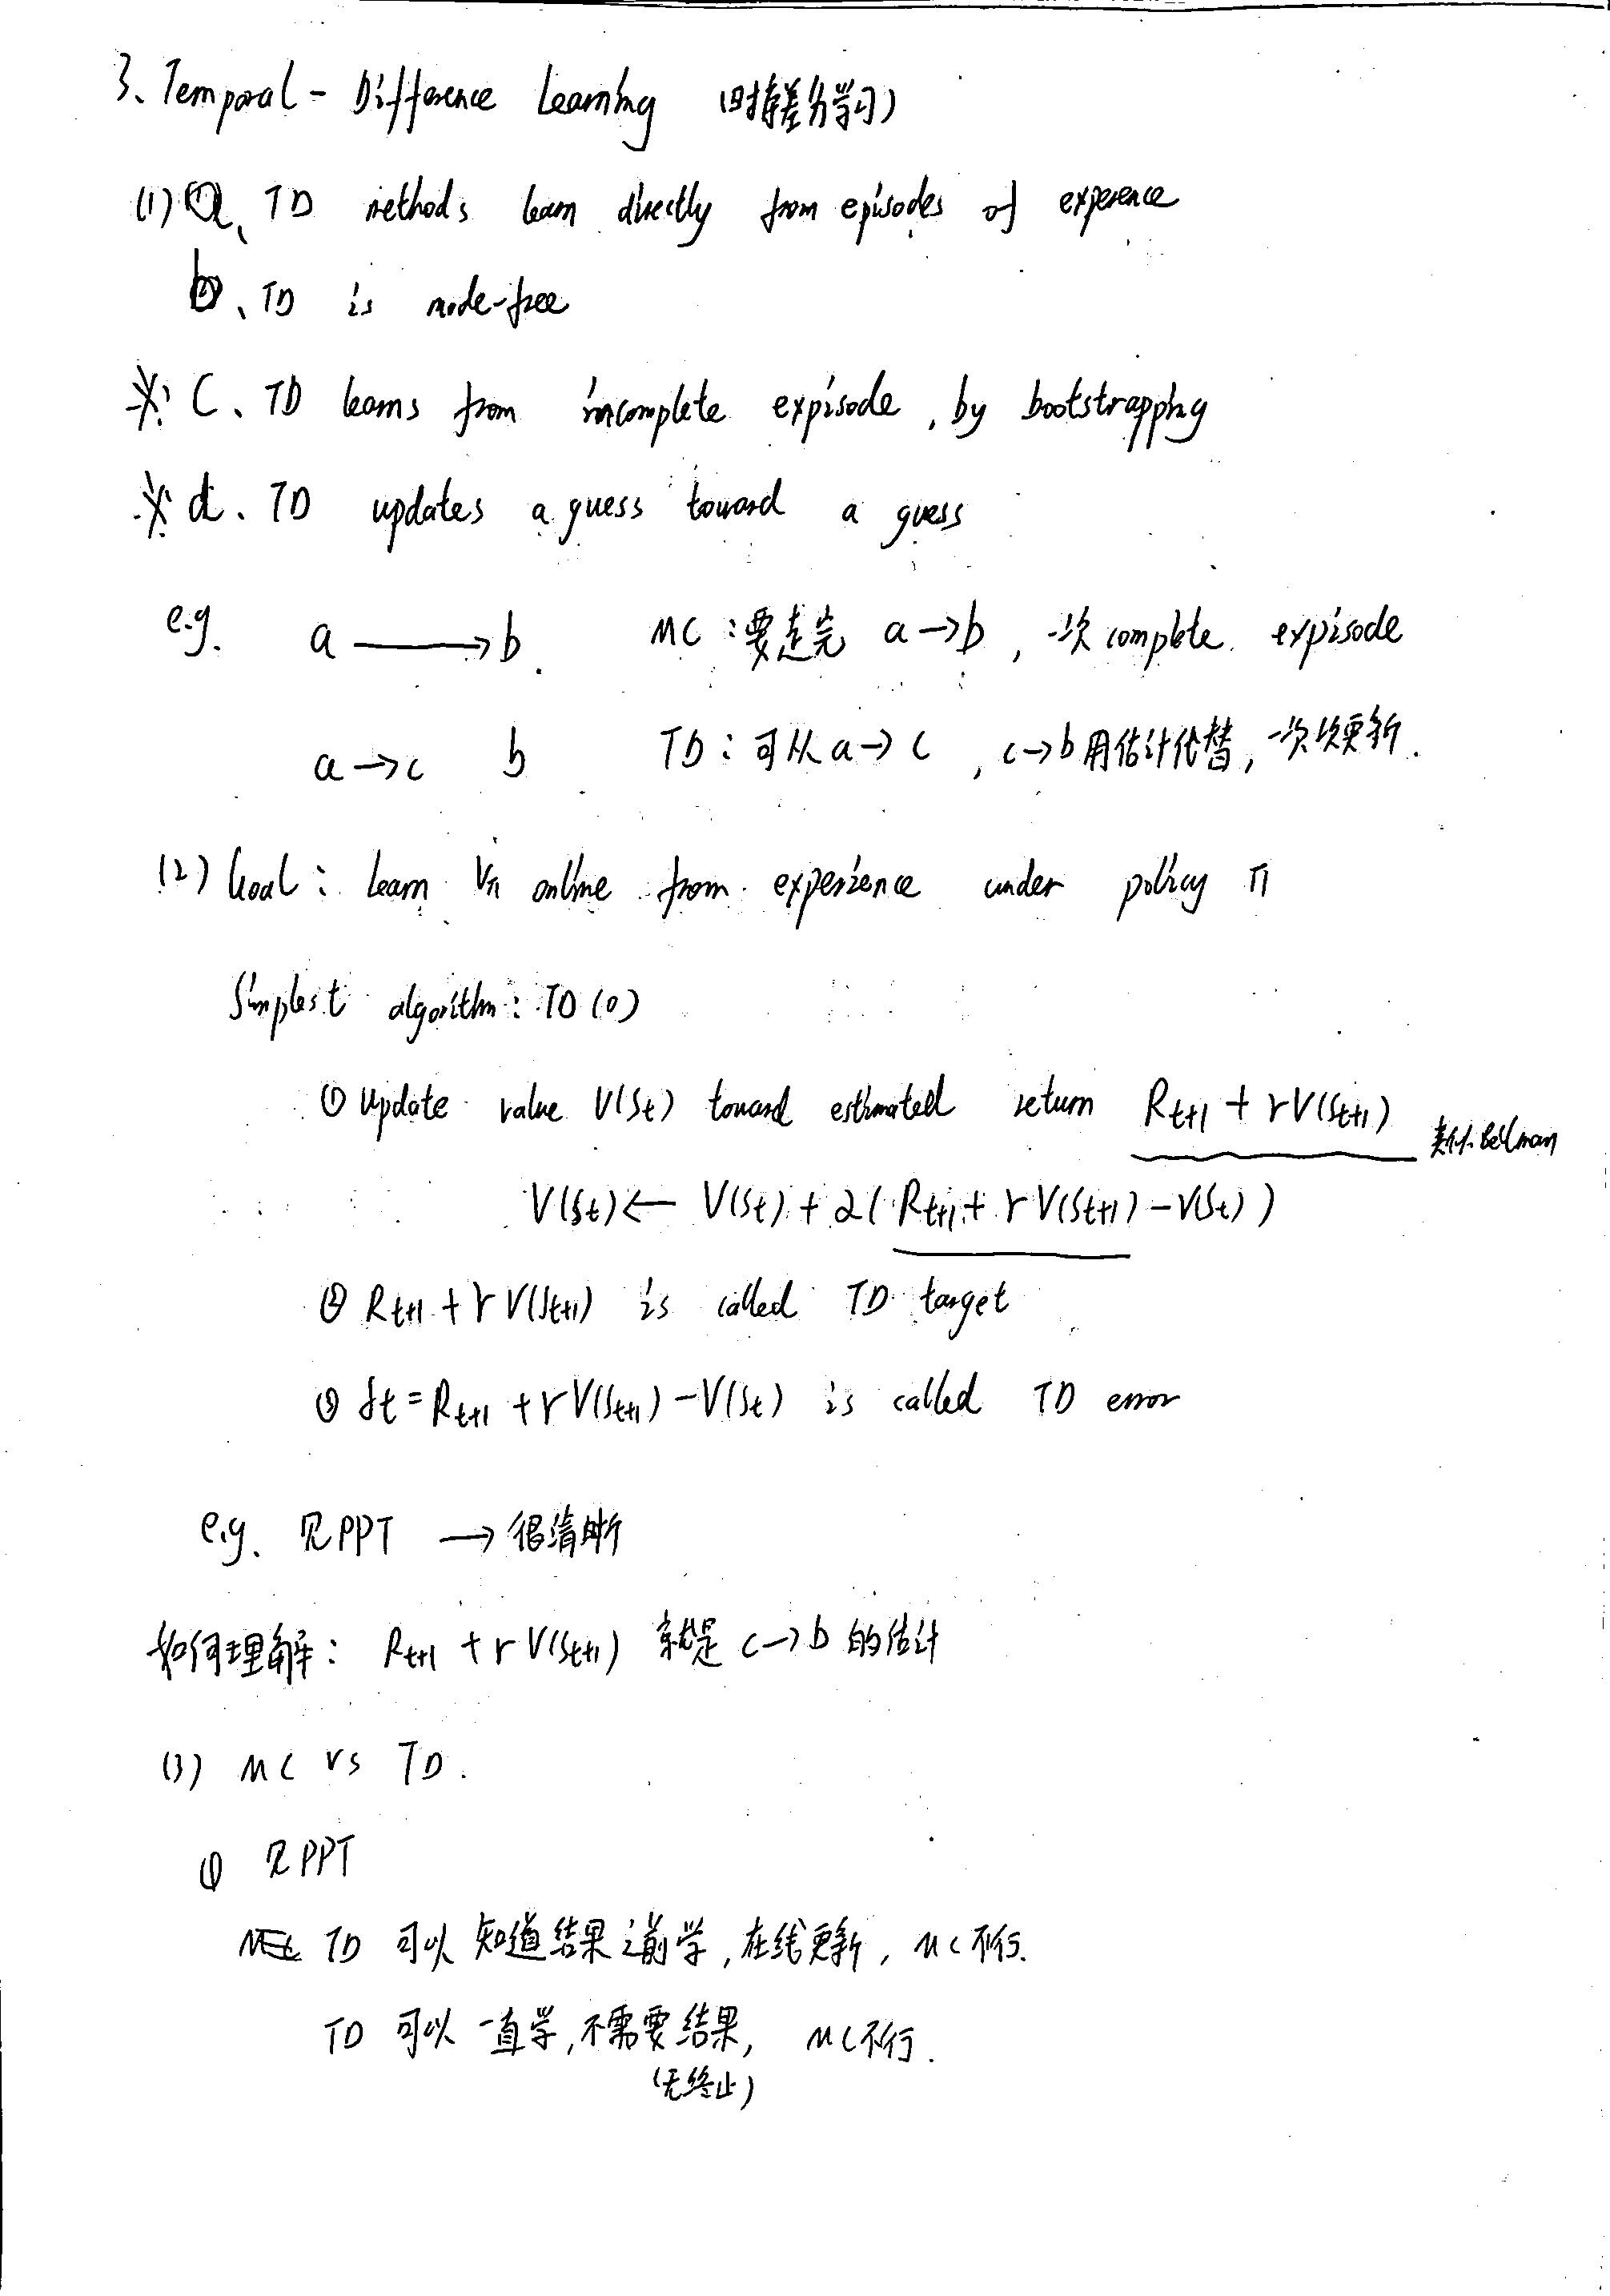 3、Temporal - Difference Learning (时序差分学习)
(1) a、TD methods learn directly from episodes of experence
b、TD is mode-free
※ C、TD learns from incomplete expisode, by bootstrapping
※ d、TD updates a guess toward a guess
e.g. a → b. MC:要走完 a→b, 一次 complete expisode
a→c b TD:可从a→c, c→b用估计代替, 一次次更新.
(2) Goal: learn Vπ online from experience under policy π
Simplest algorithm: TD(0)
① Update value V(St) toward estimated return Rt+1 + rV(St+1) 类似 Bellman
V(St) ← V(St) + α(Rt+1 + rV(St+1) - V(St))
② Rt+1 + rV(St+1) is called TD target
③ δt = Rt+1 + rV(St+1) - V(St) is called TD error
e.g. 见PPT → 很清晰
如何理解: Rt+1 + rV(St+1) 就是 c→b 的估计
(3) MC vs TD.
① 见PPT
TD 可以 知道结果之前学,在线更新, MC不行.
TD 可以 一直学,不需要结果, MC不行.
(无终止)